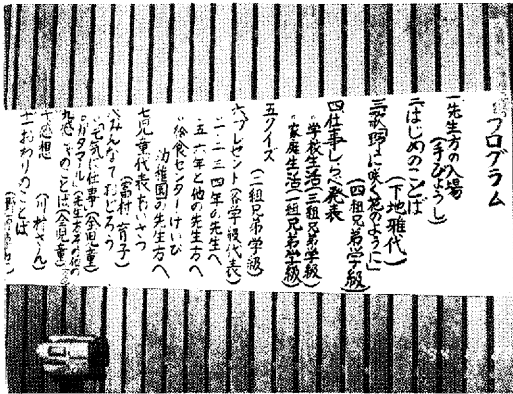 プログラム
一先生方の入場
(手びょうし)
二はじめのことば
(下地雅代)
三歌「野に咲く花のように」
(四組兄弟学級)
四仕事しらべ発表
◦学校生活(三組兄弟学級)
◦家庭生活(一組兄弟学級)
五クイズ
(二組兄弟学級)
六プレゼント(各学級代表)
◦一・二・三・四年の先生へ
◦五・六年と他の先生方へ
◦給食センター・けいび
幼稚園の先生方へ
七児童代表あいさつ
(富村育子)
八みんなでおどろう
「元気に仕事」(全児童)
九感しゃのことば(全児童)
十感想 (川村さん)
十一おわりのことば